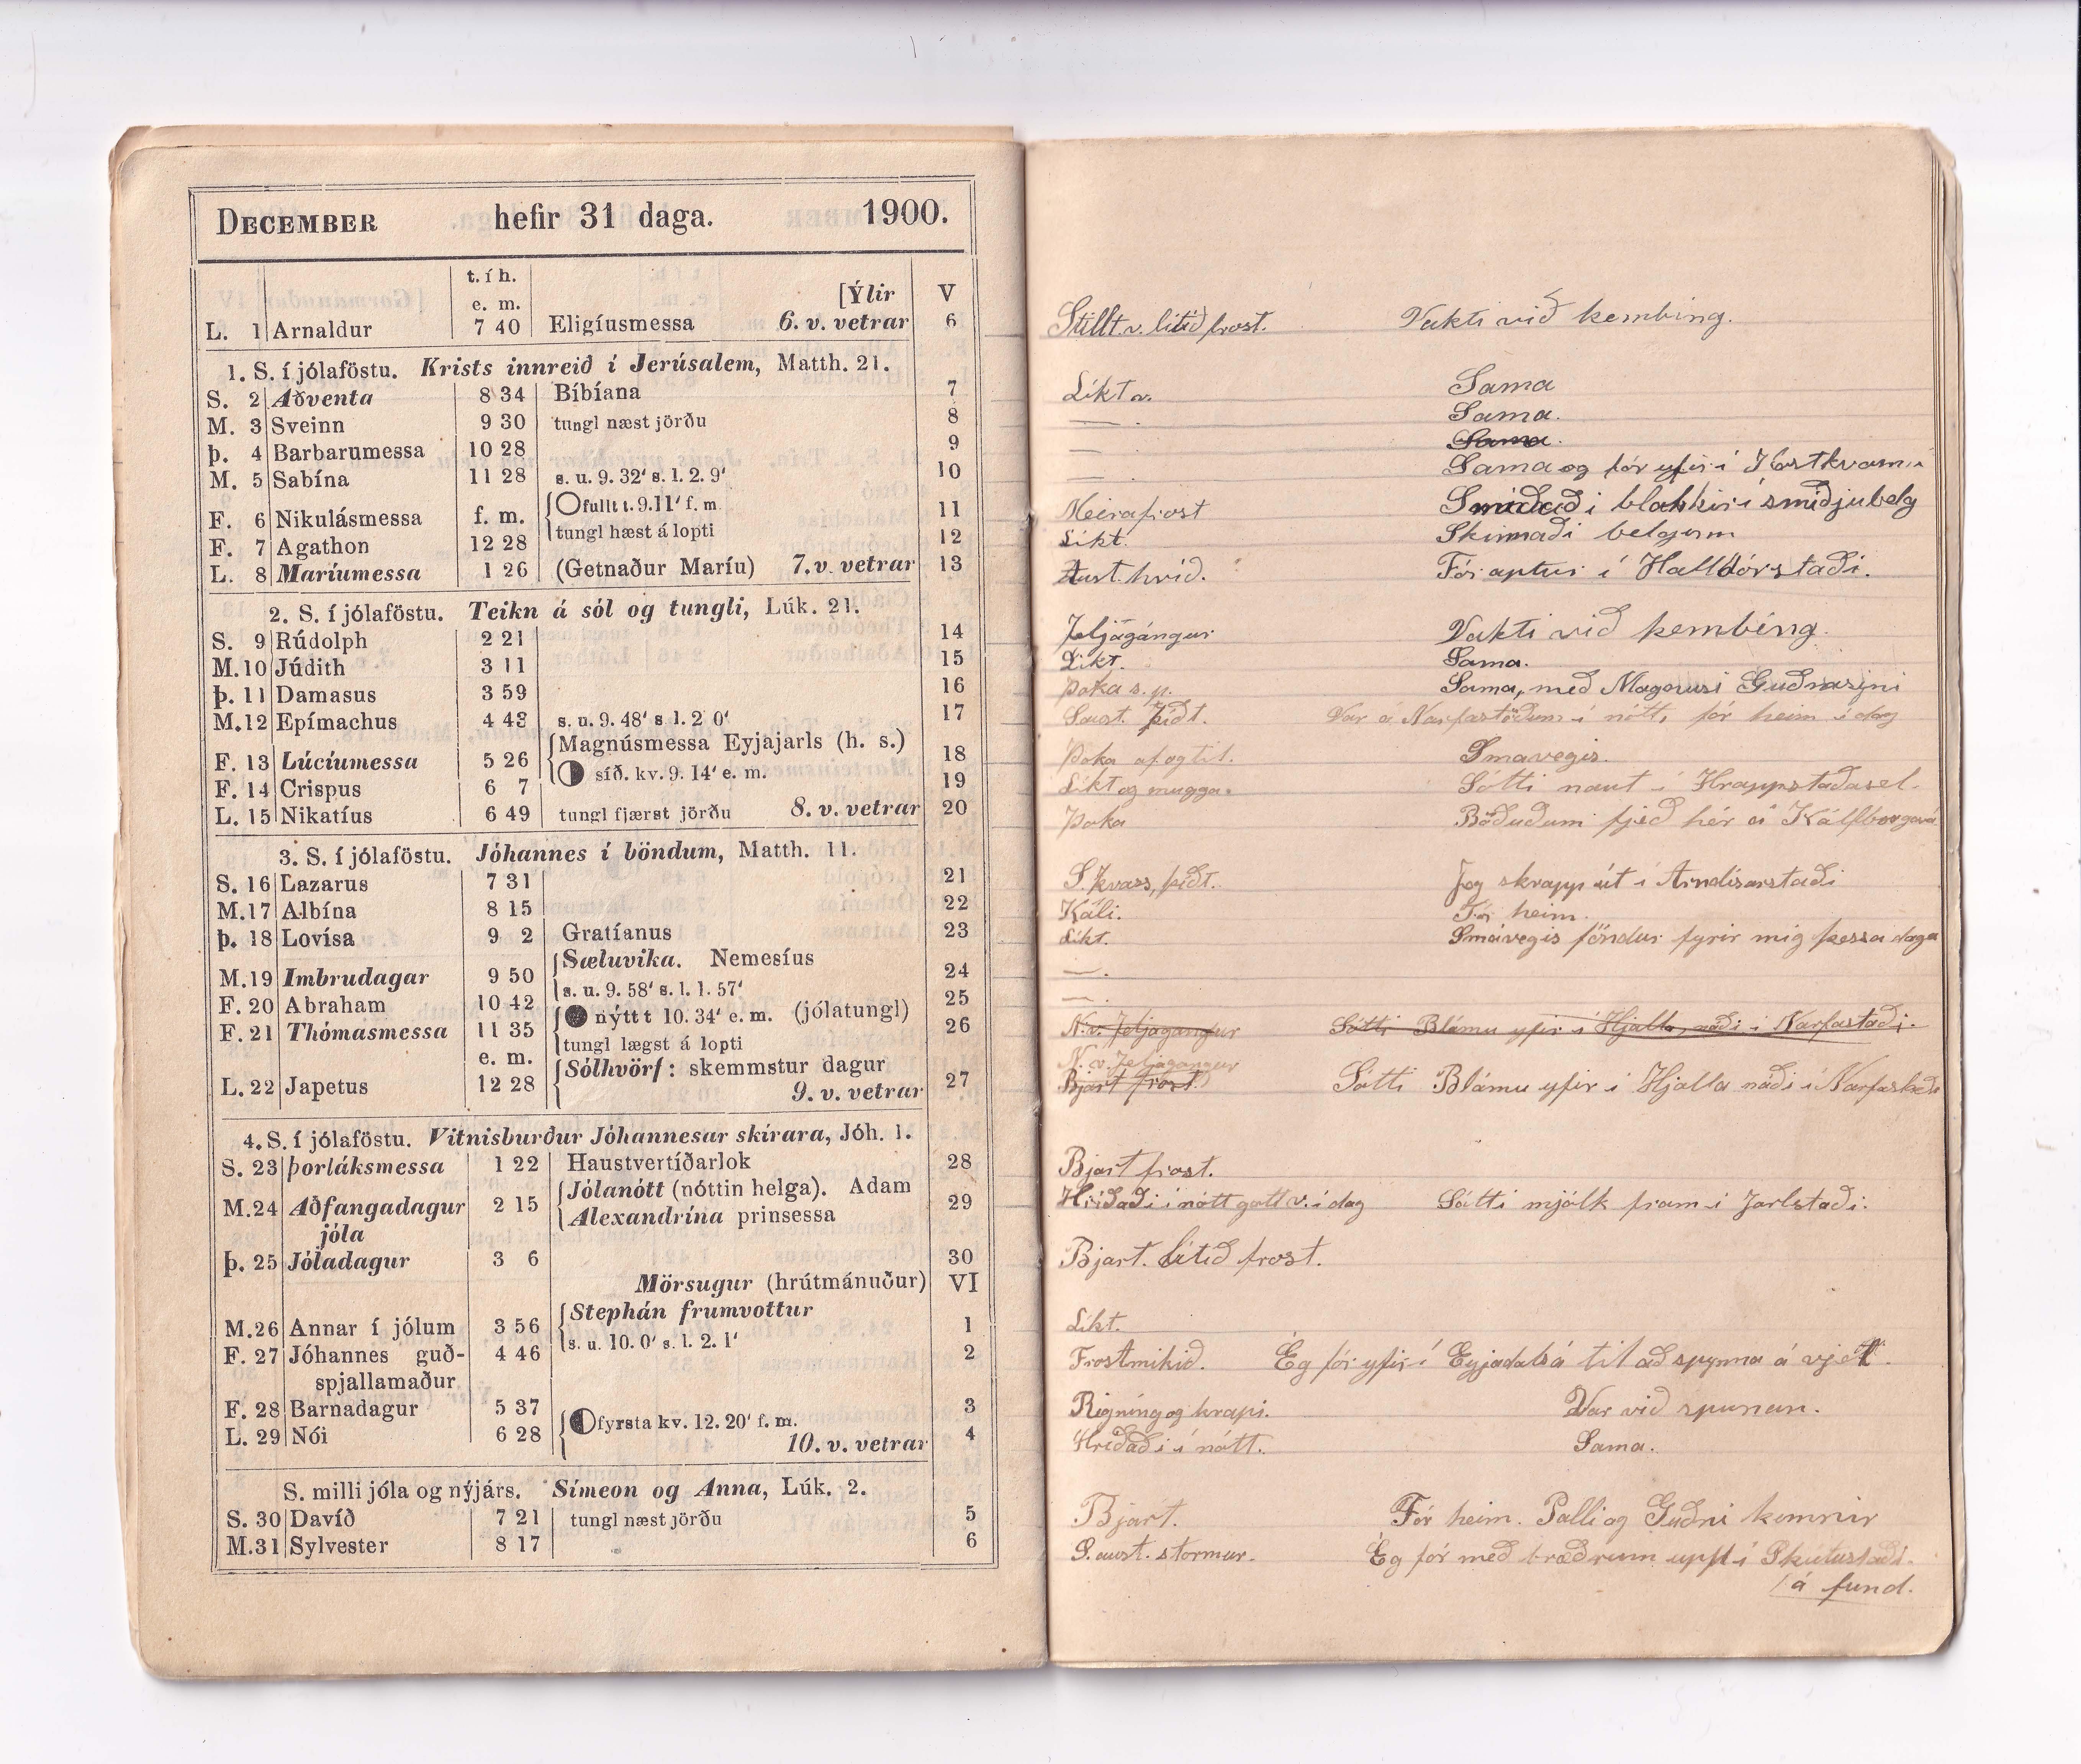 DECEMBER hefir 31 daga. 1900.
t. í h.
e. m. [Ýlir V
L. 1 Arnaldur 7 40 Eligíusmessa 6. v. vetrar 6
1. S. í jólaföstu. Krists innreið í Jerúsalem, Matth. 21.
S. 2 Aðventa 8 34 Bíbíana 7
M. 3 Sveinn 9 30 tungl næst jörðu 8
Þ. 4 Barbarumessa 10 28 9
M. 5 Sabína 11 28 s. u. 9. 32' s. l. 2. 9' 10
fullt t. 9.11' f. m.
F. 6 Nikulásmessa f. m. 11
tungl hæst á lopti
F. 7 Agathon 12 28 12
L. 8 Maríumessa 1 26 (Getnaður Maríu) 7. v. vetrar 13
2. S. í jólaföstu. Teikn á sól og tungli, Lúk. 21.
S. 9 Rúdolph 2 21 14
M. 10 Júdith 3 11 15
Þ. 11 Damasus 3 59 16
M. 12 Epímachus 4 43 s. u. 9. 48' s. l. 2. 0' 17
Magnúsmessa Eyjajarls (h. s.)
F. 13 Lúcíumessa 5 26 18
síð. kv. 9. 14' e. m.
F. 14 Crispus 6 7 19
L. 15 Nikatíus 6 49 tungl fjærst jörðu 8. v. vetrar 20
3. S. í jólaföstu. Jóhannes í böndum, Matth. 11.
S. 16 Lazarus 7 31 21
M. 17 Albína 8 15 22
Þ. 18 Lovísa 9 2 Gratíanus 23
Sæluvika. Nemesíus
M. 19 Imbrudagar 9 50 24
s. u. 9. 58' s. l. 1. 57'
F. 20 Abraham 10 42 25
nýtt t 10. 34' e. m. (jólatungl)
F. 21 Thómasmessa 11 35 26
tungl lægst á lopti
e. m.
Sólhvörf: skemmstur dagur
L. 22 Japetus 12 28 27
9. v. vetrar
4. S. í jólaföstu. Vitnisburður Jóhannesar skírara, Jóh. 1.
S. 23 Þorláksmessa 1 22 Haustvertíðarlok 28
Jólanótt (nóttin helga). Adam
M. 24 Aðfangadagur 2 15 29
Alexandrína prinsessa
jóla
Þ. 25 Jóladagur 3 6 30
Mörsugur (hrútmánuður) VI
Stephán frumvottur
M. 26 Annar í jólum 3 56 1
s. u. 10. 0' s. l. 2. 1'
F. 27 Jóhannes guð- 4 46 2
spjallamaður
F. 28 Barnadagur 5 37 3
fyrsta kv. 12. 20' f. m.
L. 29 Nói 6 28 4
10. v. vetrar
S. milli jóla og nýjárs. Símeon og Anna, Lúk. 2.
S. 30 Davíð 7 21 tungl næst jörðu 5
M. 31 Sylvester 8 17 6
Stillt. v. lítið frost. Vakti við kembing.
Líkt v. Sama
— . Sama.
— . Sama.
— . Sama og fór yfir í
Meira frost í smiðjubelg
Líkt. Skinnaði belginn
Aust. hríð. Fór aptur í Halldórstaði.
Jeljagángur Vakti við kembing.
Líkt. Sama.
Þoka s. p. Sama, með Magnusi Guðnasyni
Saust. þiðt. Var á Narfastöðum í nótt, fór heim í dag
Þoka af og til. Smavegis.
Líkt og mugga. Sótti naut í Hrappstaðasel.
Þoka Böðuðum fjeð hér á Kálfborgará
S. kvass, þiðt. Jeg skrapp út í Arndísarstaði
Káli. Fór heim.
Líkt. Smávegis föndur fyrir mig þessa daga
— .
— .
N. v. Jeljagangur Sótti Blámu yfir í Hjalla, náði í Narfastaði.
N. v. Jeljagangur
Bjart frost. Sótti Blámu yfir í Hjalla náði í Narfastaði
Bjart frost.
Hríðaði í nótt gott v. í dag Sótti mjólk fram í Jarlstaði.
Bjart. Lítið frost.
Líkt.
Frostmikið. Ég fór yfir í Eyjadalsá til að spynna á vjel.
Rigning og krapi. Var við spunan.
Hríðaði í nótt. Sama.
Bjart. Fór heim. Palli og Guðni komnir
S. aust. stormur. Ég fór með bræðrum upp í Skutustaði
á fund.